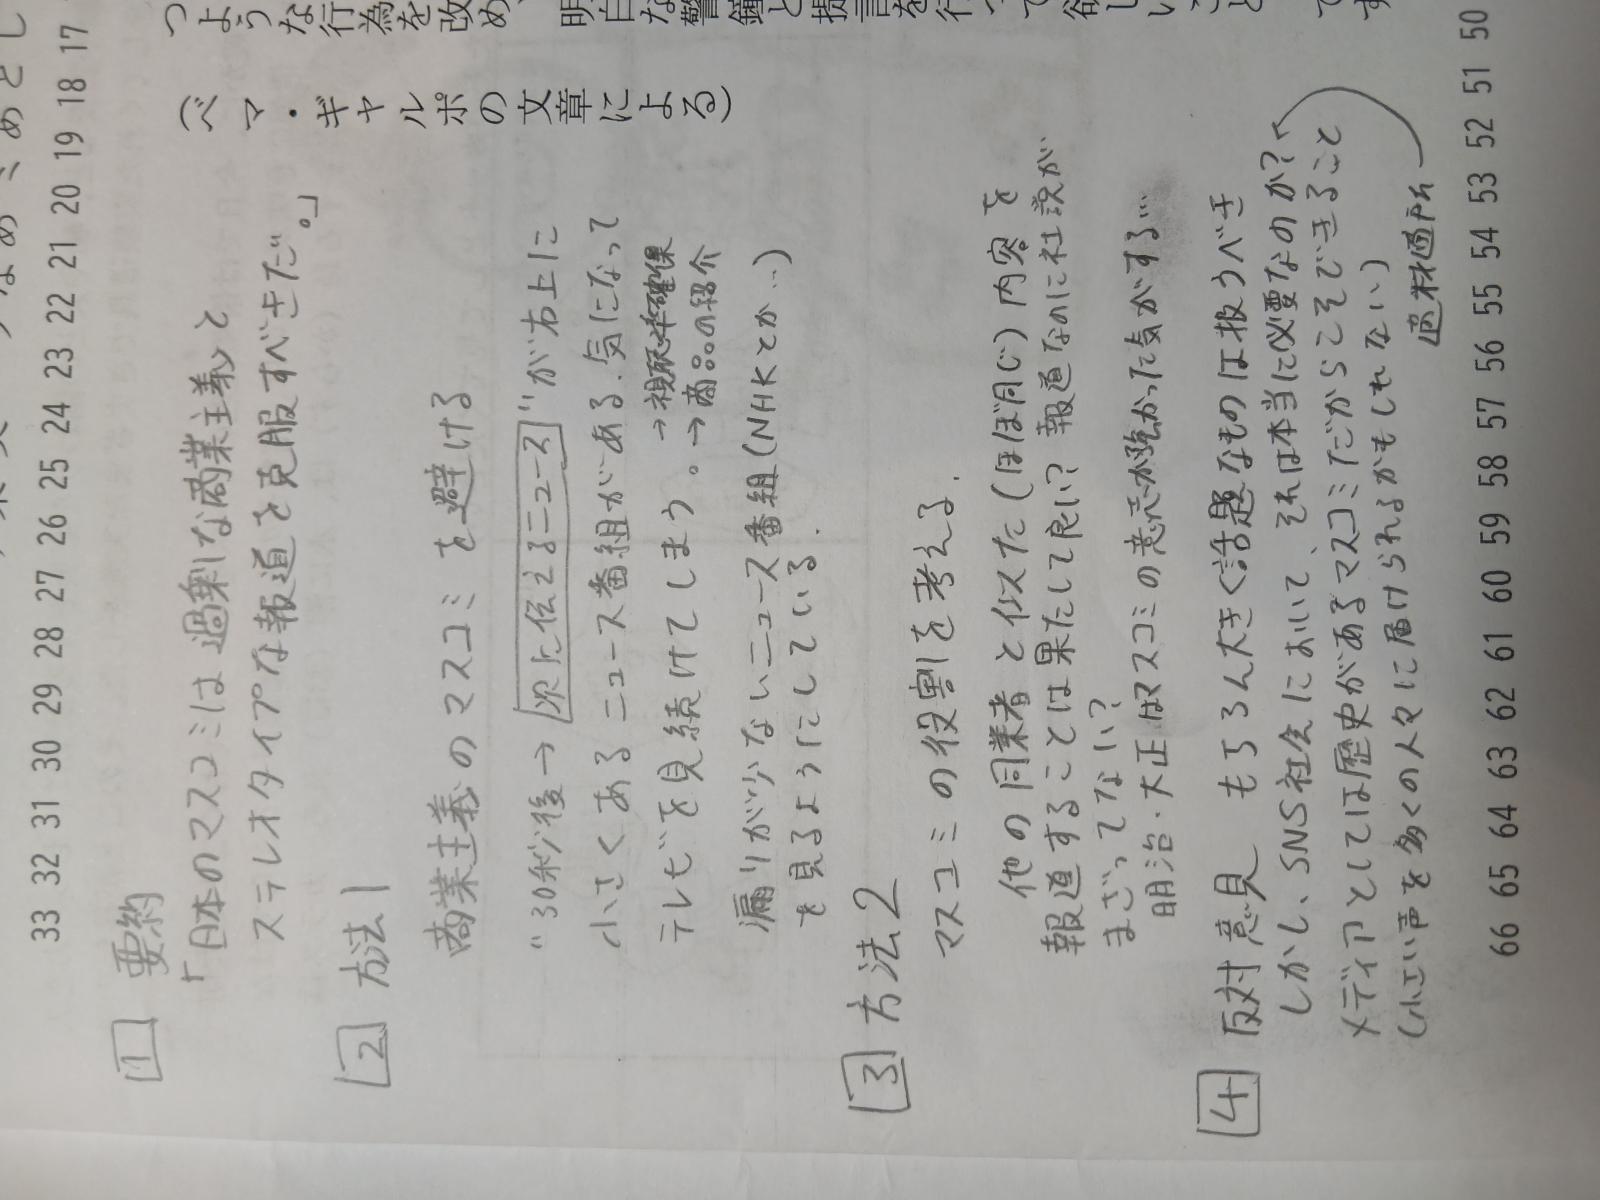 つような行為を改め
明白な警鐘と提言を行って欲しいことです
(ペマ・ギャルポの文章による)
33 32 31 30 29 28 27 26 25 24 23 22 21 20 19 18 17
1 要約
「日本のマスコミは過剰な商業主義と
ステレオタイプな報道を克服すべきだ。」
2 方法1
商業主義のマスコミを避ける
"30秒後→次に伝えるニュース"が右上に
小さくあるニュース番組がある.気になって
テレビを見続けてしまう。→視聴率確保
→商品の紹介
漏りが少ないニュース番組(NHKとか…)
を見るようにしている.
3 方法2
マスコミの役割を考える.
他の同業者と似た(ほぼ同じ)内容を
報道することは果たして良い?報道なのに社説が
まざってない?
明治・大正はマスコミの意志が強かった気がする…
4 反対意見 もちろん大きく話題なものは扱うべき
しかし、SNS社会において、それは本当に必要なのか?
メディアとしては歴史があるマスコミだからこそできること
(小さい声を多くの人々に届けられるかもしれない)
適材適所
66 65 64 63 62 61 60 59 58 57 56 55 54 53 52 51 50